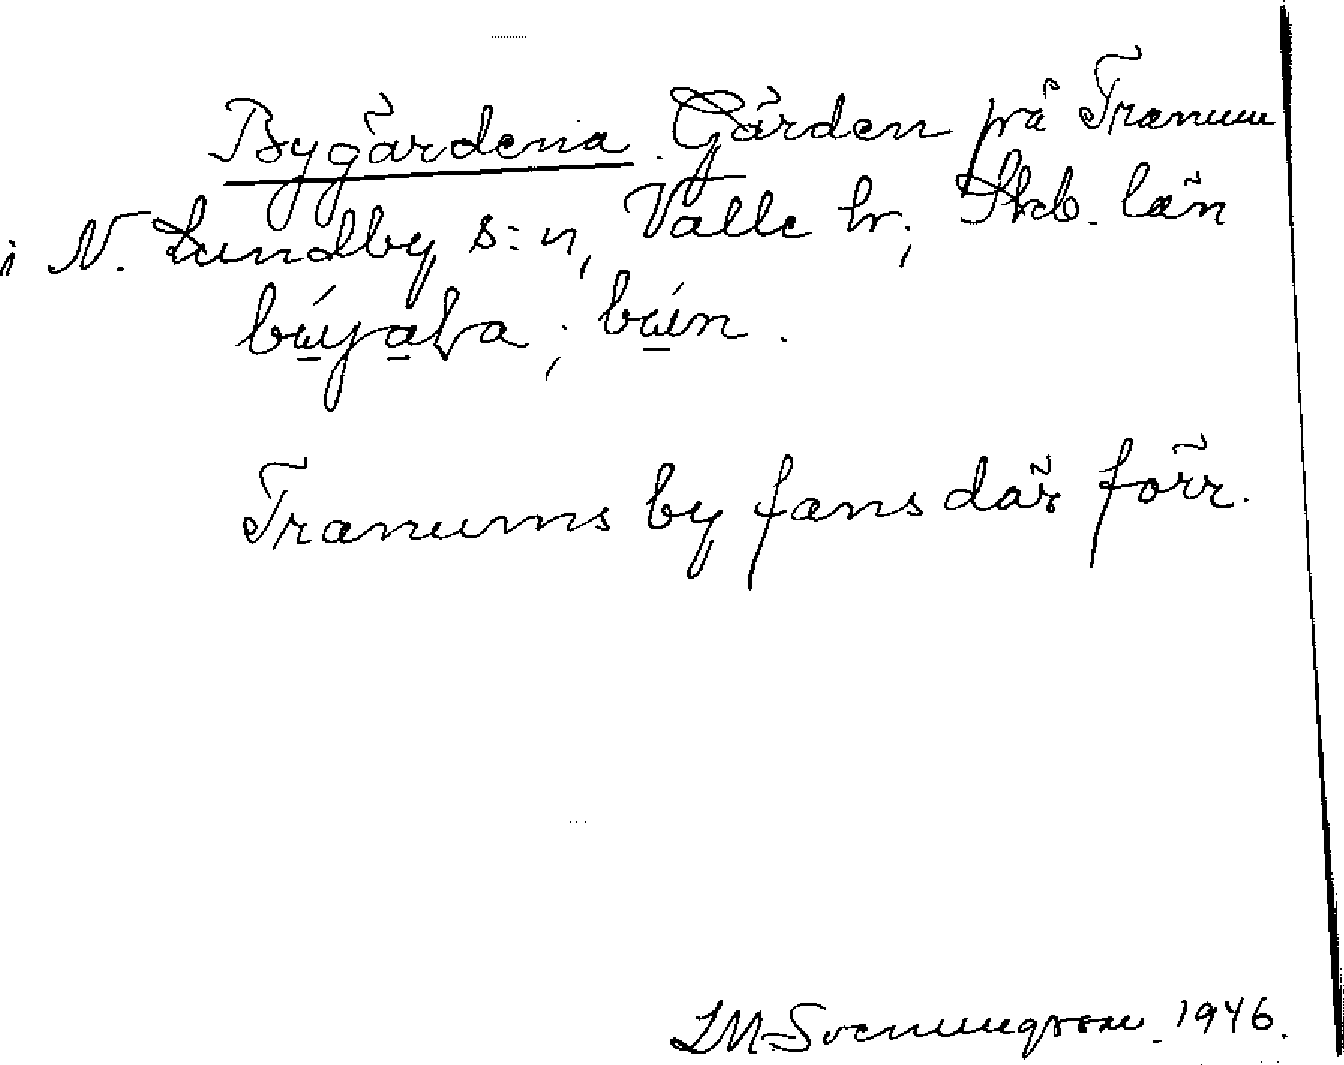 Bygårdena. Gården på Tranum
i N. Lundby s:n, Valle hr; Skb. län
búyaɫa; búin.
Tranums by fans där förr.
LM. Svenungsson 1946.